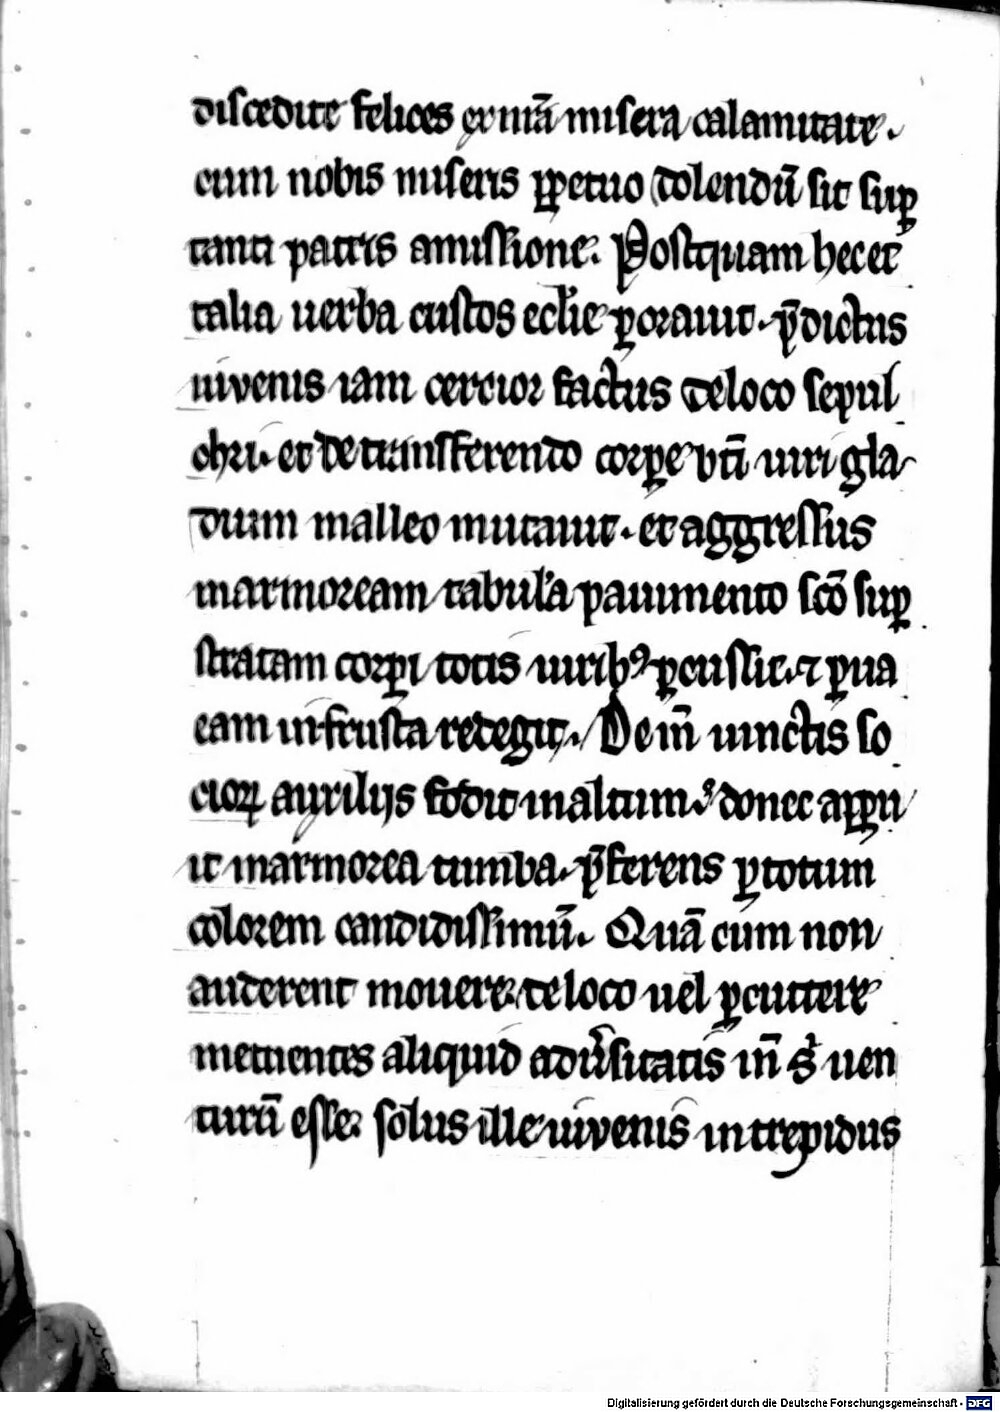 discedite felices ex nr̄a misera calamitate.
cum nobis miseris ꝑpetuo dolendū sit suꝑ
tanti patris amissione. Postquam hec et
talia uerba custos ecl'ie ꝑorauit. p̄dictus
iuvenis iam cercior factus de loco sepul
chri. et de transferendo corꝑe btī uiri gla
dium malleo mutauit. et aggressus
marmoream tabula pauimento scō suꝑ
stratam corꝑi totis uiribꝰ ꝑcussit. ⁊ ꝑua
eam in frusta redegit. Dem̄ uinctis so
cioꝝ auxilijs fodit in altum. donec apꝑu
it marmorea tumba. p̄ferens ꝑ totum
colorem candidissimū. Quā cum non
auderent mouere de loco uel ꝑcuttere
metuentes aliquid adu̓sitatis in̄ s' uen
turū esse. solus ille iuvenis intrepidus
Digitalisierung gefördert durch die Deutsche Forschungsgemeinschaft - DFG